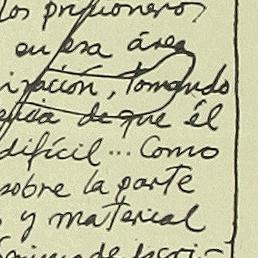 los prisioneros
en esa área
ización, tomando
encia de que él
difícil... Como
sobre la parte
y material